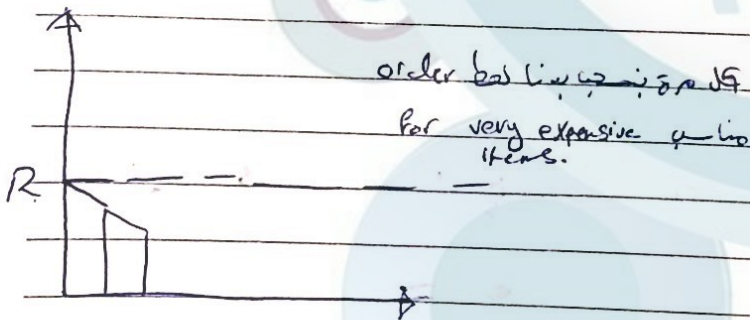 كل مرة بنسحب بينا لحط order
مناسب for very expensive
items.
R